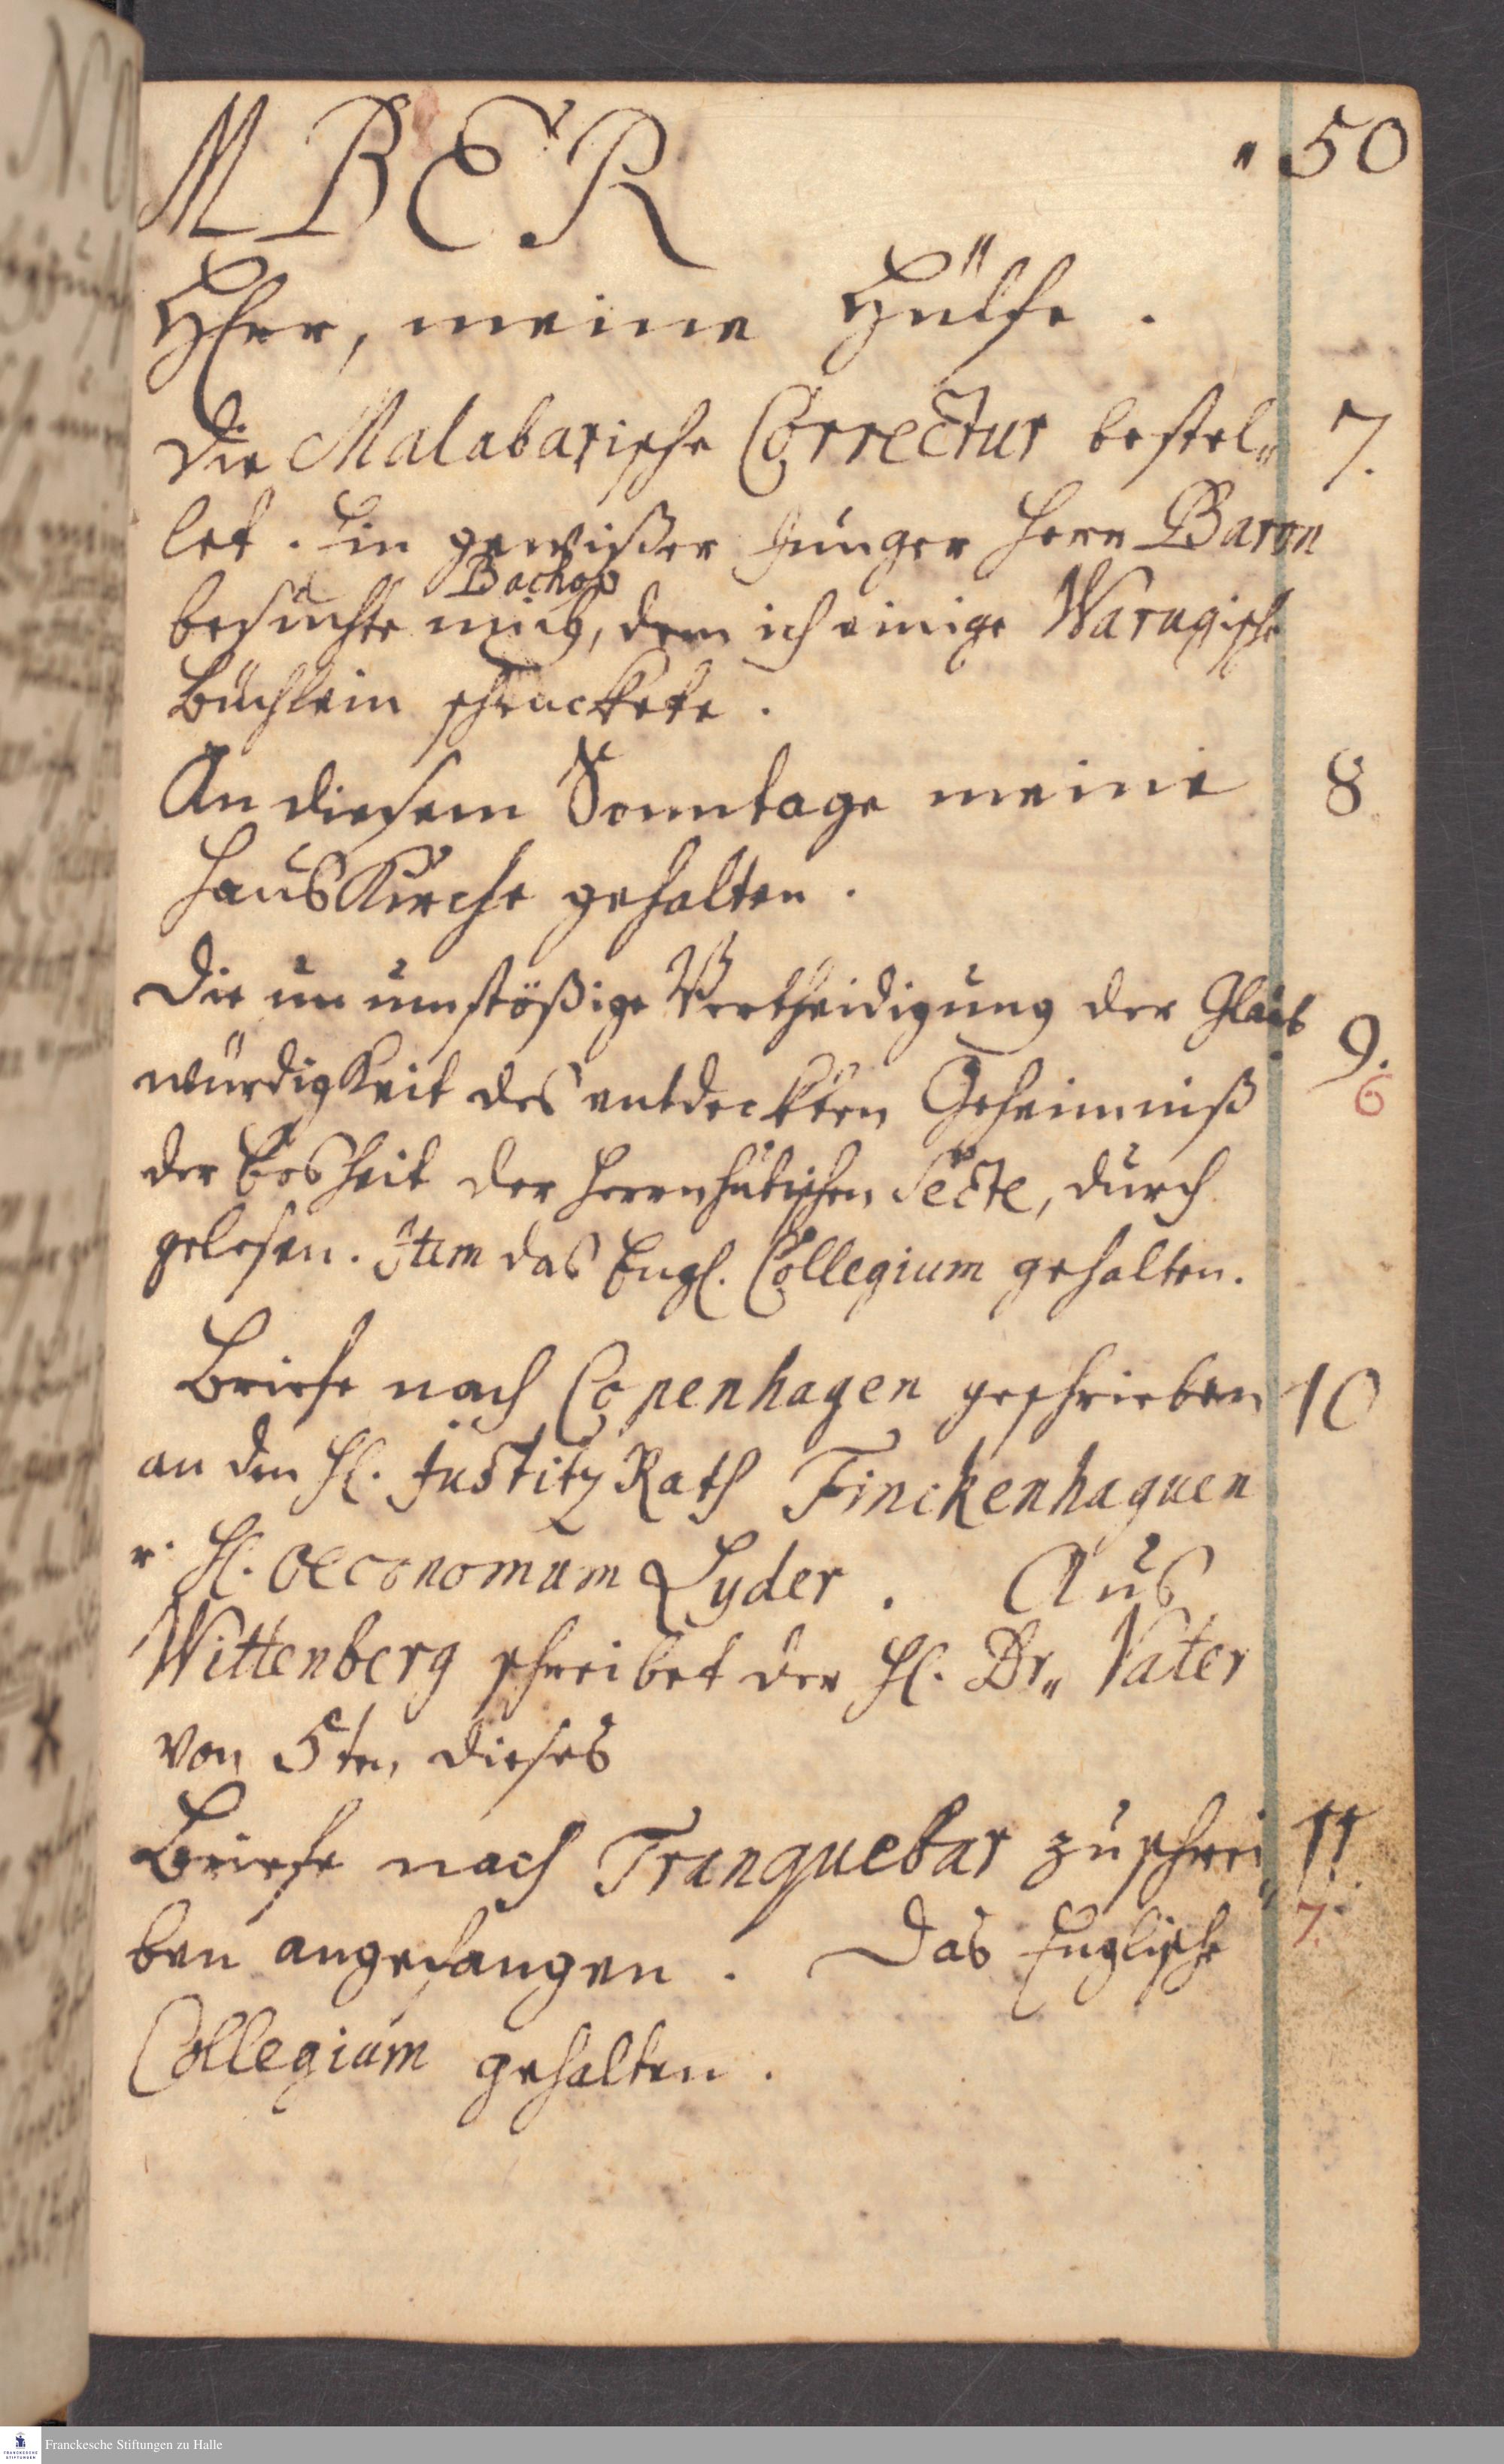 MBER " 50
HErr, meine Hülfe.
Die Malabarische Correctur bestel„ 7.
let. Ein gewißer junger Herr Baron
Bachof
besuchte mich, dem ich einige Warugische
Büchlein schenckete.
An diesem Sonntage meine 8.
HausKirche gehalten.
Die un umstößige Vertheidigung der Glaub
würdigkeit des entdeckten Geheimniß 9.
6
der Bosheit der Herrnhutischen Secte, durch
gelesen. Item das Engl. Collegium gehalten.
Briefe nach Copenhagen geschrieben 10
an den H. Justitz Rath Finckenhaguen
u. H. Oeconomum Lyder. Aus
Wittenberg schreibet der H. Dr„ Vater
von 5ten dieses
Briefe nach Tranquebar zu schrei„ 11.
ben angefangen. Das Englische 7.
Collegium gehalten.
Franckesche Stiftungen zu Halle